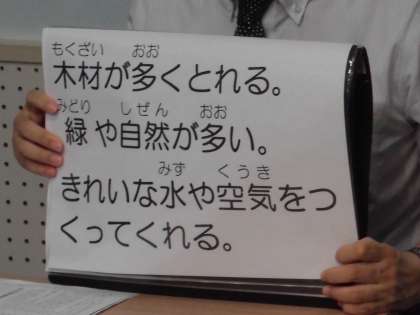 もくざい おお
木材が多くとれる。
みどり しぜん おお
緑や自然が多い。
みず くうき
きれいな水や空気をつ
くってくれる。